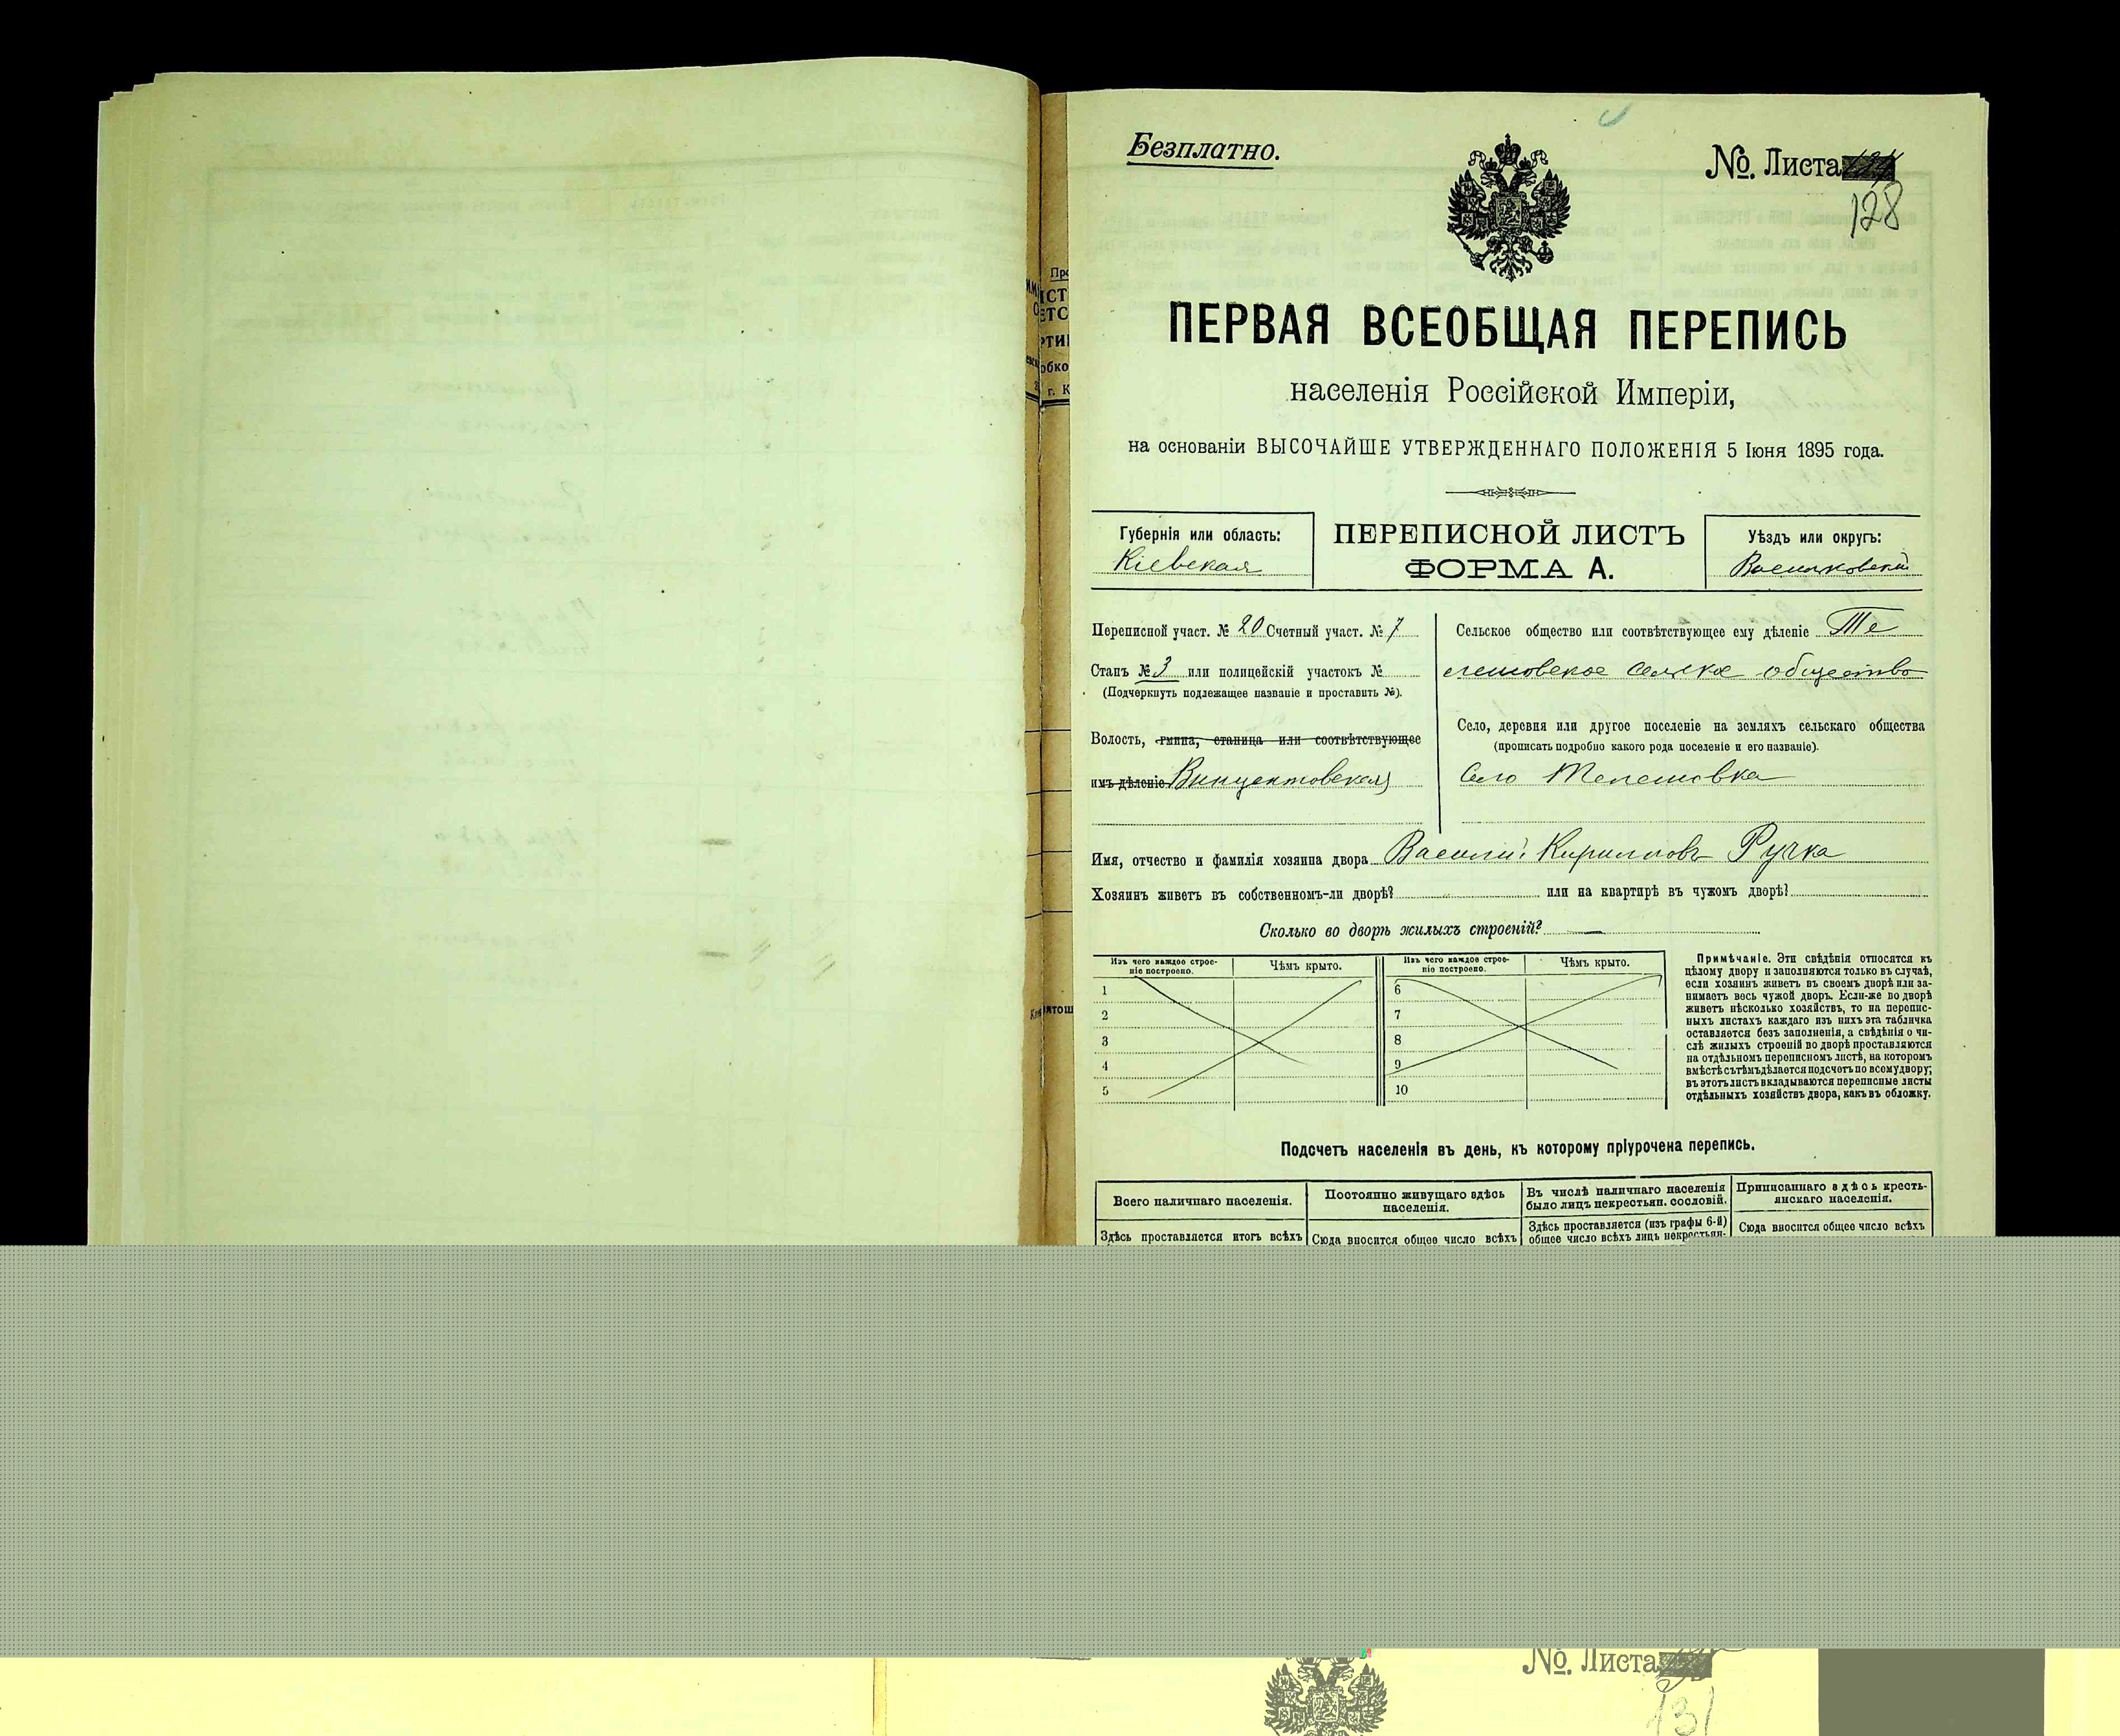 Безплатно.
№. Листа
128
ПЕРВАЯ ВСЕОБЩАЯ ПЕРЕПИСЬ
населенія Россійской Имперіи,
на основаніи ВЫСОЧАЙШЕ УТВЕРЖДЕННАГО ПОЛОЖЕНІЯ 5 Іюня 1895 года.
Губернія или область:
Кіевская
ПЕРЕПИСНОЙ ЛИСТЪ
ФОРМА А.
Уѣздъ или округъ:
Васильковскій
Переписной участ. № 20 Счетный участ. № 7
Станъ № 3 или полицейскій участокъ №
(Подчеркнуть подлежащее названіе и проставить №).
Волость, гмина, станица или соотвѣтствующее
имъ дѣленіе Винцентовская
Сельское общество или соотвѣтствующее ему дѣленіе Те
лешовское сельское общество
Село, деревня или другое поселеніе на земляхъ сельскаго общества
(прописать подробно какого рода поселеніе и его названіе).
Село Телешовка
Имя, отчество и фамилія хозяина двора Василій Кирилловъ Ручка
Хозяинъ живетъ въ собственномъ-ли дворѣ? или на квартирѣ въ чужомъ дворѣ?
Сколько во дворѣ жилыхъ строеній? —
Изъ чего каждое строе-
ніе построено.
Чѣмъ крыто.
Изъ чего каждое строе-
ніе построено.
Чѣмъ крыто.
1
2
3
4
5
6
7
8
9
10
Примѣчаніе. Эти свѣдѣнія относятся къ
цѣлому двору и заполняются только въ случаѣ,
если хозяинъ живетъ въ своемъ дворѣ или за-
нимаетъ весь чужой дворъ. Если-же во дворѣ
живетъ нѣсколько хозяйствъ, то на перепис-
ныхъ листахъ каждаго изъ нихъ эта табличка
оставляется безъ заполненія, а свѣдѣнія о чи-
слѣ жилыхъ строеній во дворѣ проставляются
на отдѣльномъ переписномъ листѣ, на которомъ
вмѣстѣ съ тѣмъ дѣлается подсчетъ по всему двору;
въ этотъ листъ вкладываются переписные листы
отдѣльныхъ хозяйствъ двора, какъ въ обложку.
Подсчетъ населенія въ день, къ которому пріурочена перепись.
Всего наличнаго населенія.
Постоянно живущаго здѣсь
населенія.
Въ числѣ наличнаго населенія
было лицъ некрестьян. сословій.
Приписаннаго здѣсь кресть-
янскаго населенія.
Здѣсь проставляется итогъ всѣхъ
Сюда вносится общее число всѣхъ
Здѣсь проставляется (изъ графы 6-й)
общее число всѣхъ лицъ некрестьян-
Сюда вносится общее число всѣхъ
№. Листа
131